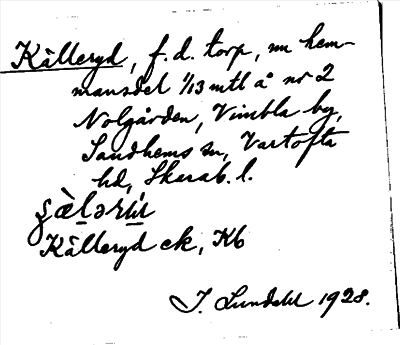 Källeryd, f. d. torp, nu hem-
mansdel 1/13 mtl å nr 2
Nolgården, Vimbla by,
Sandhems sn, Vartofta
hd, Skarab. l.
Källeryd ek, Kb
J. Lundahl 1928.